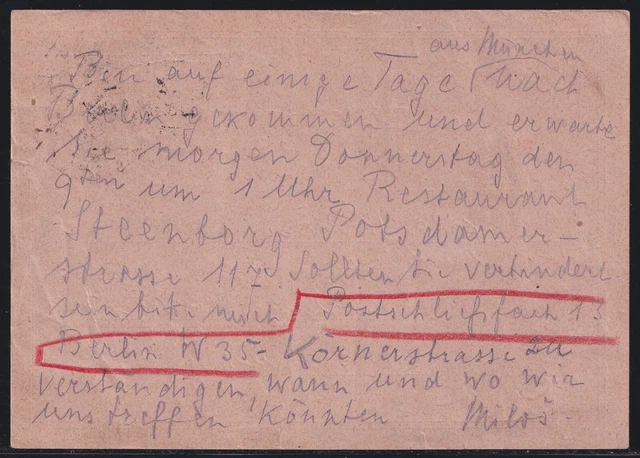 aus München
Bin auf einige Tage nach
Berlin gekommen und erwarte
Sie morgen Donnerstag den
9ten um 1 Uhr Restaurant
Steenborg Potsdamer-
strasse 117. Sollten Sie verhindert
sein bitte mich Postschließfach 13
Berlin W 35 - Körnerstrasse zu
verständigen, wann und wo wir
uns treffen könnten Miloš -